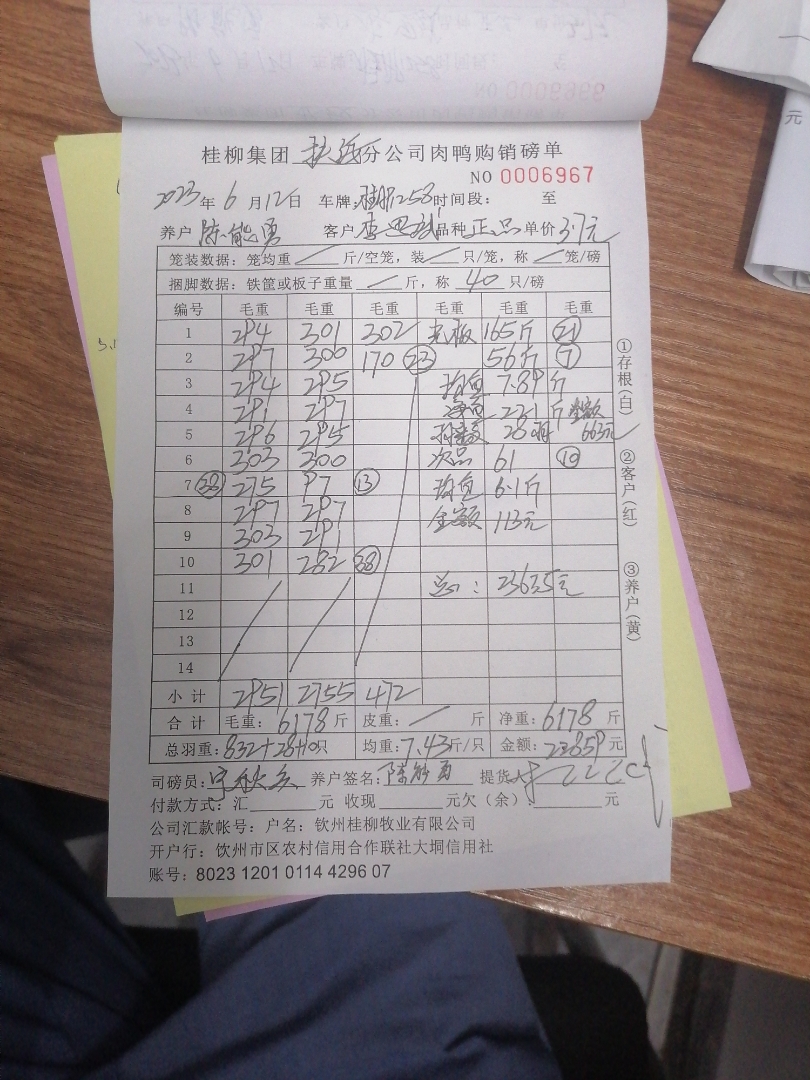 桂柳集团 分公司肉鸭购销磅单
NO 0006967
2023年 6 月 12日 车牌: 1258 时间段: 至
养户 陈能勇 客户 李 品种 正品 单价 3.7元
笼装数据: 笼均重 / 斤/空笼, 装 / 只/笼, 称 / 笼/磅
捆脚数据: 铁筐或板子重量 / 斤, 称 40 只/磅
编号 毛重 毛重 毛重 毛重 毛重 毛重
1 294 301 302 毛板 165斤 21
2 297 300 170 23 56斤 7
3 294 295 均重 7.89斤
4 291 297 净重 221斤 金额
5 296 295 28羽 663元
6 303 300 次品 61 10
7 38 275 97 13 均重 6.1斤
8 297 297 金额 113元
9 303 291
10 301 282 38
11 总: 23635元
12
13
14
小计 2951 2755 472
合计 毛重: 6178 斤 皮重: / 斤 净重: 6178 斤
总羽重: 832+28+10只 均重: 7.43斤/只 金额: 22859元
司磅员: 养户签名: 陈能勇 提货
付款方式: 汇 元 收现 元欠(余) 元
公司汇款帐号: 户名: 钦州桂柳牧业有限公司
开户行: 钦州市区农村信用合作联社大垌信用社
账号: 8023 1201 0114 4296 07
①存根(白)
②客户(红)
③养户(黄)
元